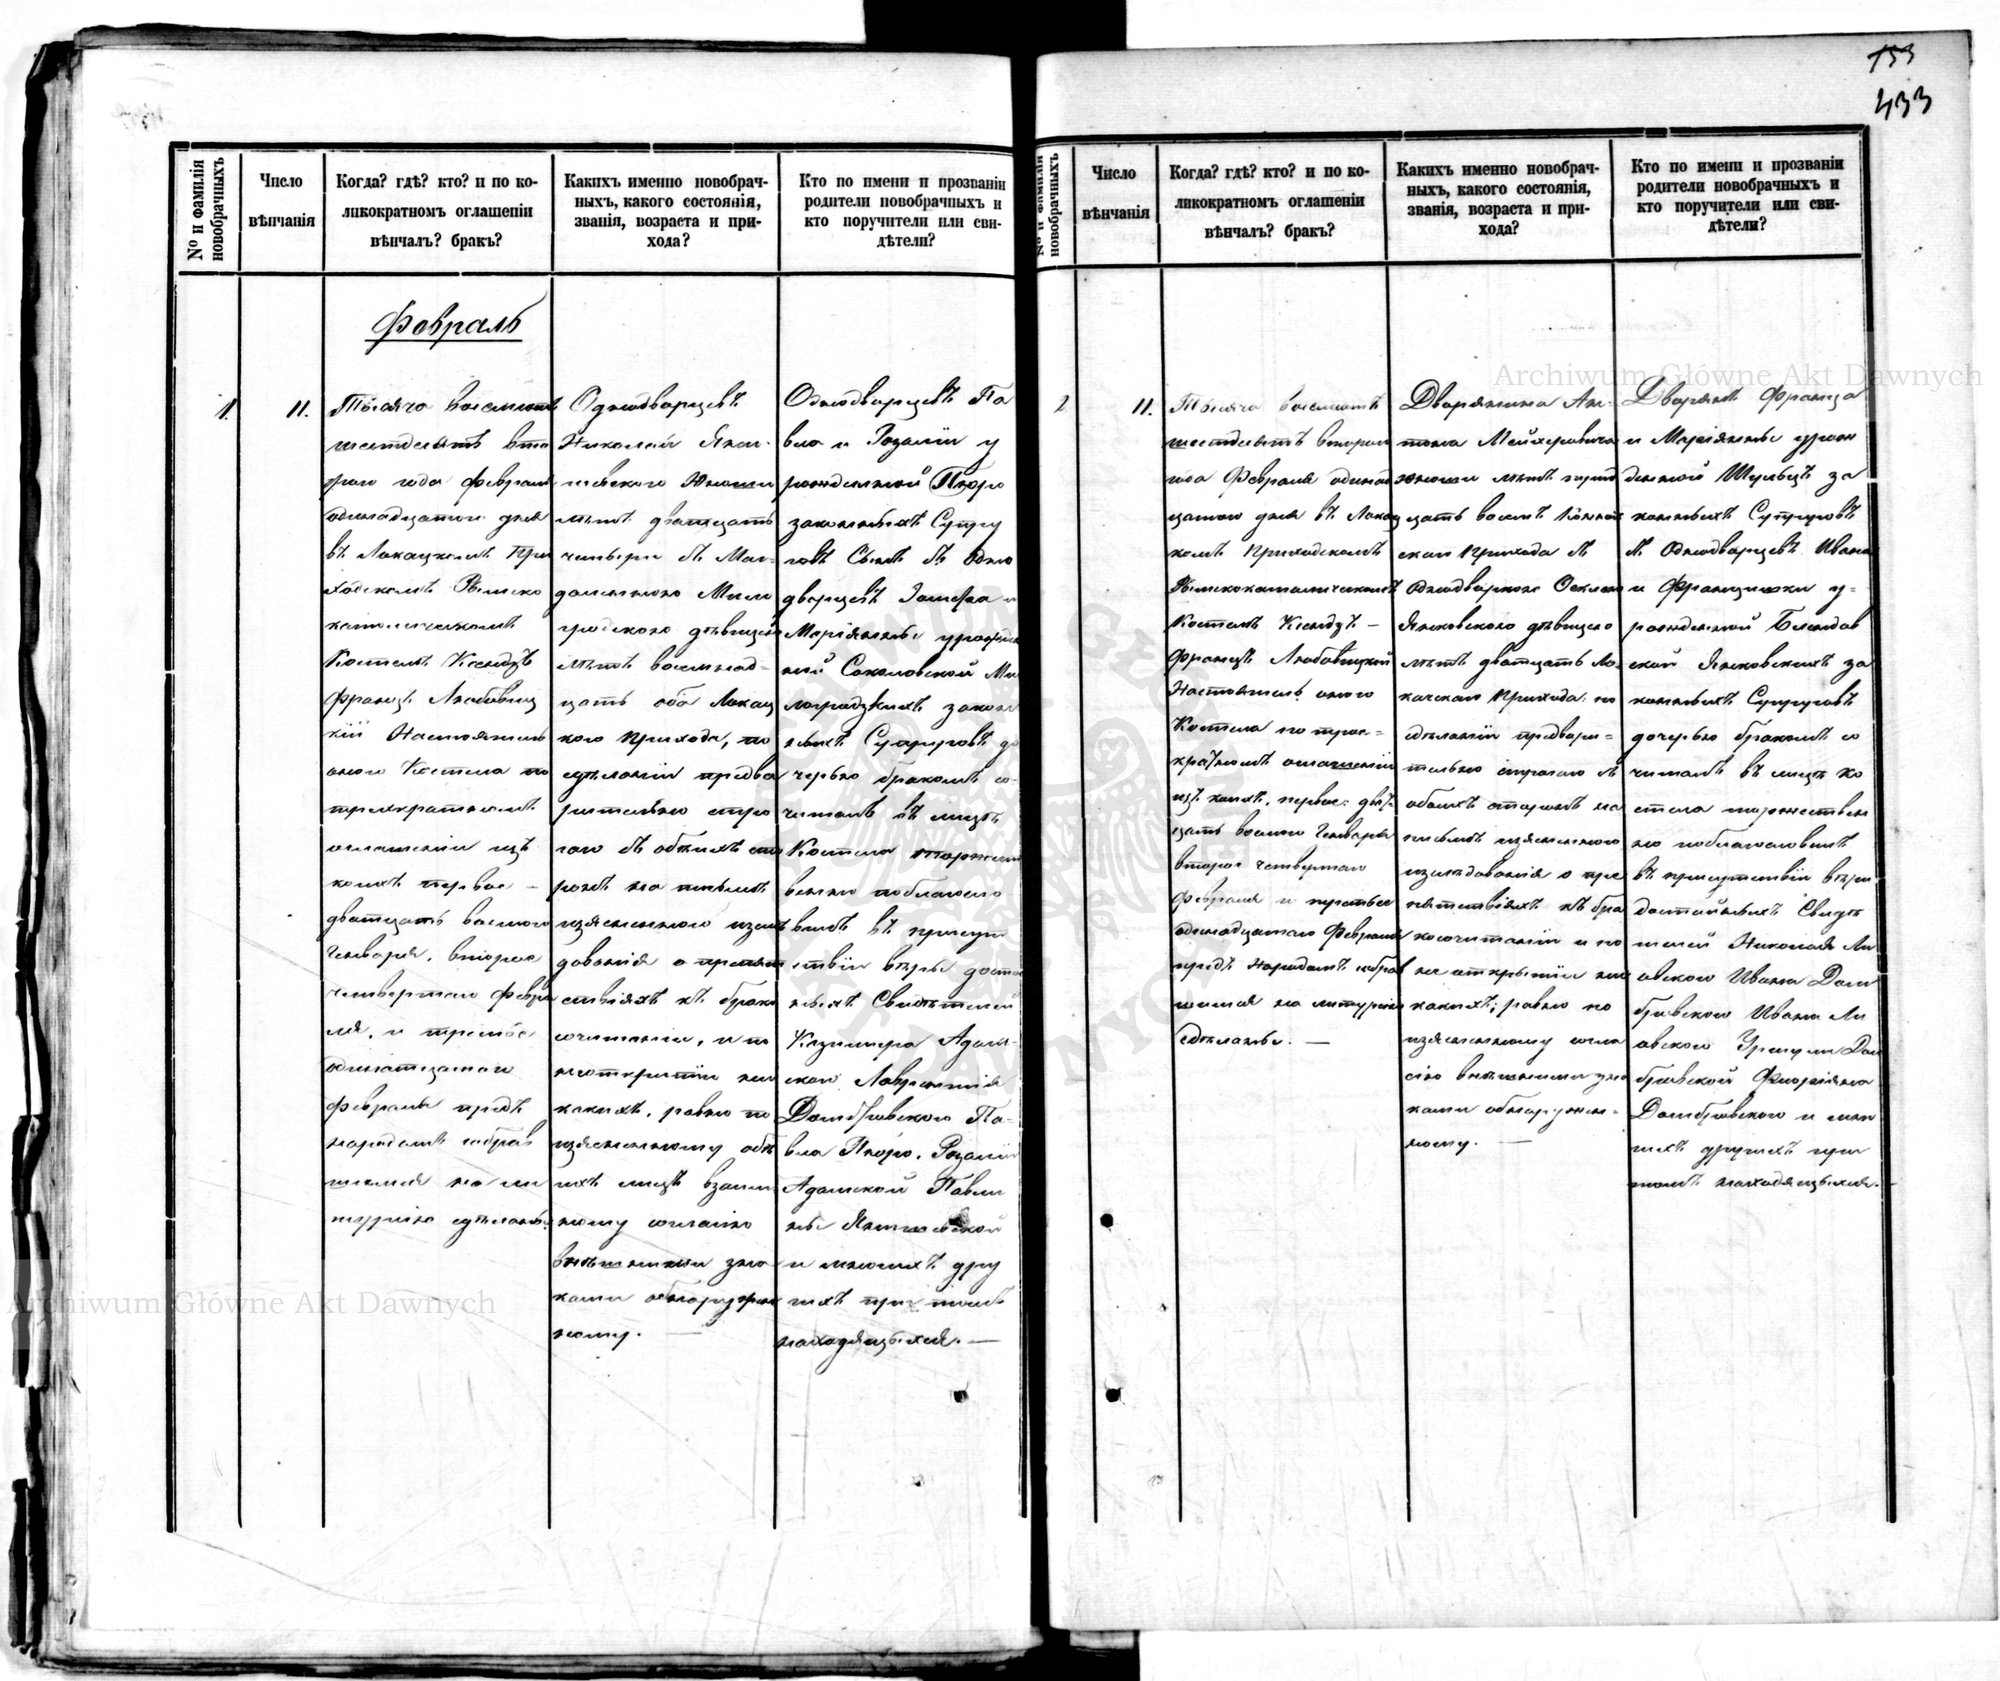 153
433
№ и фамилія новобрачныхъ
Число вѣнчанія
Когда? гдѣ? кто? и по коликократномъ оглашеніи вѣнчалъ? бракъ?
Какихъ именно новобрачныхъ, какого состоянія, званія, возраста и прихода?
Кто по имени и прозваніи родители новобрачныхъ и кто поручители или свидѣтели?
Февраль
1.
11.
Тысяча восемьсотъ
шестдесятъ вто
рого года февраля
одинадцатого дня
въ Локацкомъ При
ходскомъ Римско
католическомъ
Костелѣ Ксендзъ
Францъ Любовиц
кій Настоятель
оного Костела по
трехкратномъ
оглашеніи изъ
коихъ первое –
дватцать восмого
Генваря, второе
четвертого Февра
ля, и третье
одинатцатого
Февраля предъ
народомъ собрав
шимся на ли
тургію сдѣланы.
Однодворцевъ
Николая Яни-
шевского Юношу
лѣтъ дватцать
четыре съ Маг-
даленою Мило
градскою дѣвицею
лѣтъ восемнад-
цать оба Локац
кого Прихода, по
сдѣланіи предва
рительно стро
гого съ обѣихъ сто
ронъ на письмѣ
изясненного изслѣ
дованія о препят
ствіяхъ къ брако
сочитанію, и по
неоткрытіи ни
какихъ, равно по
изясненному обѣ
ихъ лицъ взаим
ному согласію
внѣшними зна
ками обнаружен
ному. —
Однодворцевъ Па
вла и Розаліи у
рожденной Пюро
законныхъ Супру
говъ Сынъ съ Одно
дворцевъ Іосифа и
Маріянны урожден
ной Соколовской Ми
лоградзкихъ закон
ныхъ Супруговъ до
черью бракомъ со-
читалъ въ лицѣ
Костела торжест
венно поблагосло
вилъ въ присут
ствіи вѣры досто
ныхъ Свидѣтелей
Казимира Адам-
ского Лаврентія
Домбровского Па-
вла Пюро, Розаліи
Адамской Павли
ны Янишевской
и многихъ дру
гихъ при томъ
находящыхся. —
№ и фамилія новобрачныхъ
Число вѣнчанія
Когда? гдѣ? кто? и по коликократномъ оглашеніи вѣнчалъ? бракъ?
Какихъ именно новобрачныхъ, какого состоянія, званія, возраста и прихода?
Кто по имени и прозваніи родители новобрачныхъ и кто поручители или свидѣтели?
2
11.
Тысяча восемьсотъ
шестдесятъ второго
года Февраля одинад
цатого дня въ Локац
комъ Приходскомъ
Римскокатолическомъ
Костелѣ Ксендзъ –
Францъ Любовицкій
Настоятель оного
Костела по трое=
кратномъ оглашеніи
изъ коихъ, первое дват
цать восмого Генваря
второе четвертого
Февраля и третье
одинадцатого Февраля
предъ Народомъ собрав
шимся на литургію
сдѣланы. —
Дворянина Ан-
тона Мейхеровича
юношу лѣтъ трид
цать восемь
скаго Прихода съ
однодворкою
Янковскою дѣвицею
лѣтъ двадцать Ло
качскаго Прихода: по
сдѣланіи предвари=
тельно строгого съ
обѣихъ сторонъ на
письмѣ изясненного
изслѣдованія о пре
пятствіяхъ къ бра
косочитанію и по
не открытіи ни
какихъ; равно по
изясненному согла
сію внѣшними зна
ками обнаружен=
ному. —
Дворянъ Франца
и Маріянны урож
денной Шульцъ за
конныхъ Супруговъ
съ Однодворцевъ Ивана
и Францишки у=
рожденной
ской Янковскихъ за
конныхъ Супруговъ
дочерью бракомъ со
читалъ въ лицѣ Ко
стела торжествен
но поблагословилъ
въ присутствіи вѣры
достойныхъ Свидѣ
телей Николая Ли
овского Ивана Дом
бровского Ивана Ли
овского Уршули Дом
бровской Флоріяна
Домбровского и мно
гихъ другихъ при
томъ находящыхся.
Archiwum Główne Akt Dawnych
Archiwum Główne Akt Dawnych